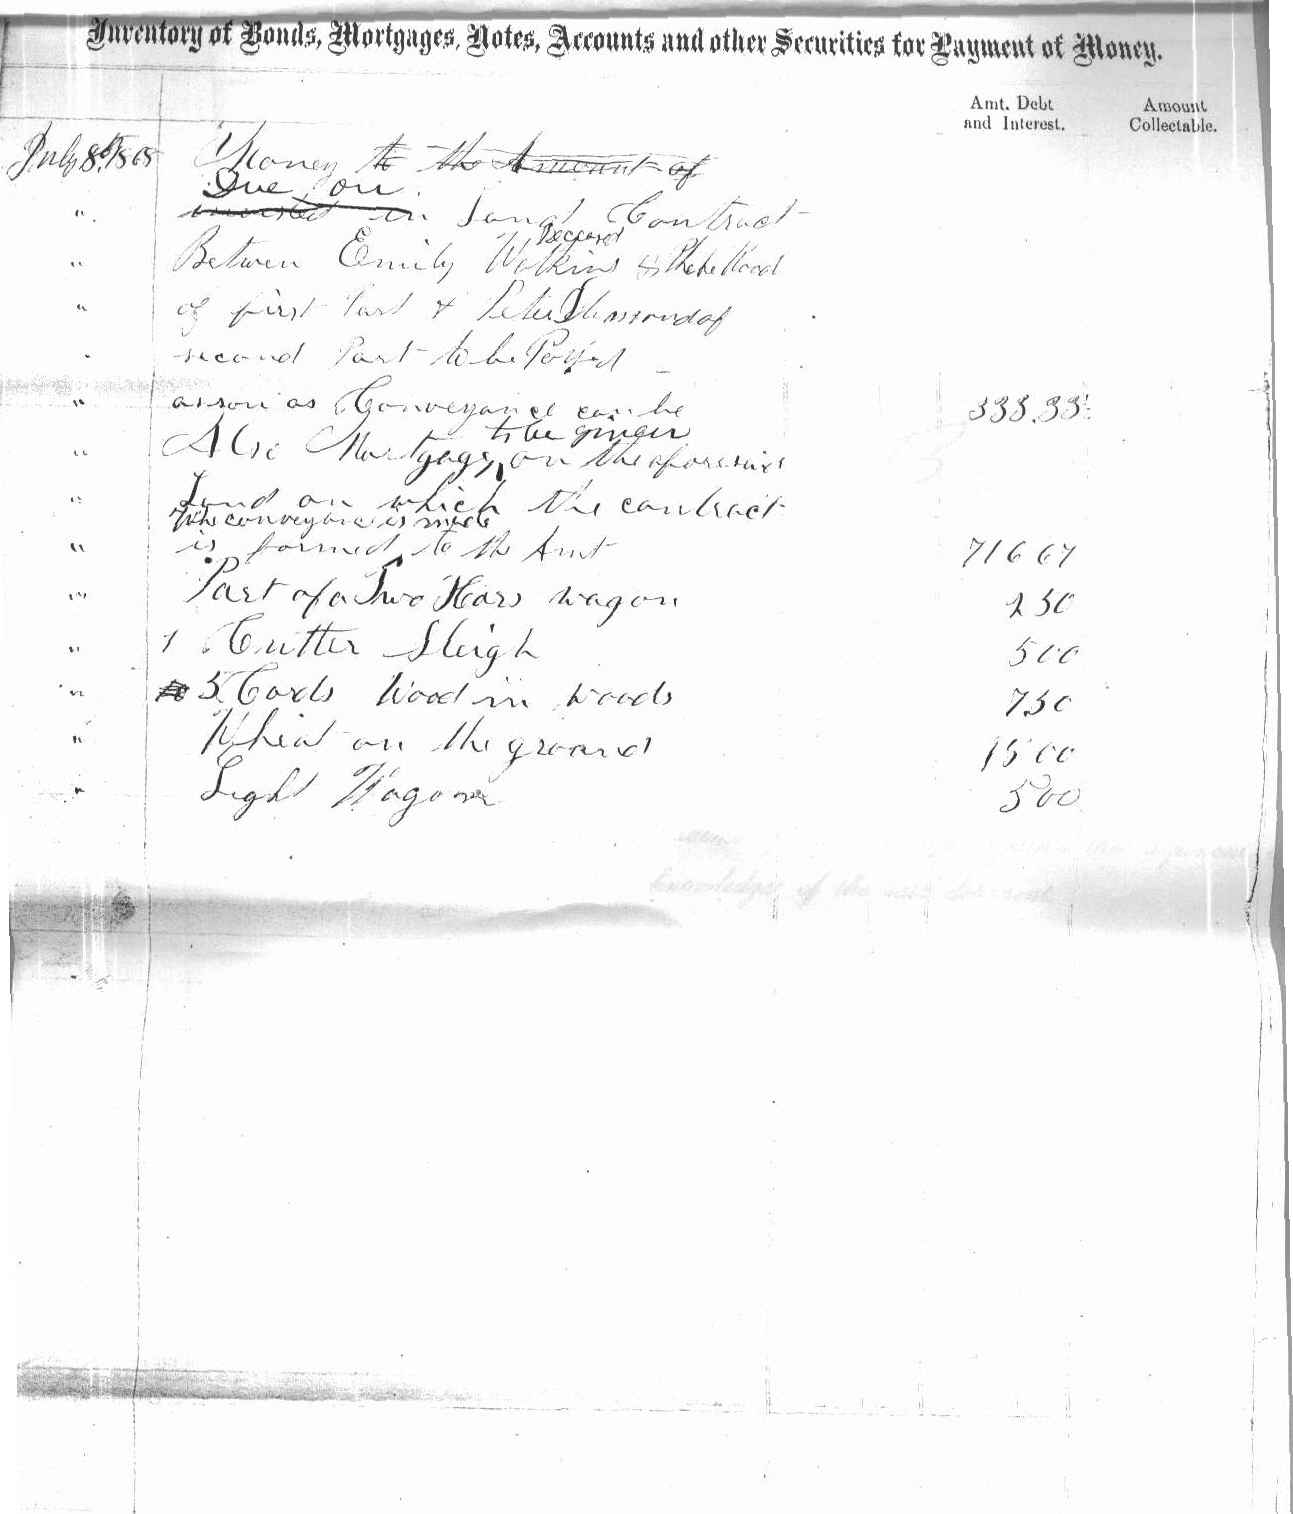 Inventory of Bonds, Mortgages, Notes, Accounts and other Securities for Payment of Money.
Amt. Debt and Interest.
Amount Collectable.
July 8th 1868 Money to the Amount of
Due on
" invested in Land Contract
Deceased
" Betwen Emily Watkins & Phebe Wood
" of first Part & Peter of
" second Part to be Payed
" as soon as Conveyance can be 333.33
to be given
" Also Mortgage, on the aforesaid
" Land on which the contract
when conveyance is made
" is formed to the Amt 716 67
" Part of a Two Hors wagon 2 50
" 1 Cutter Sleigh 5 00
" 5 Cords Wood in woods 7 50
" Wheat on the ground 15 00
" Light Wagon 5 00
knowledge of the